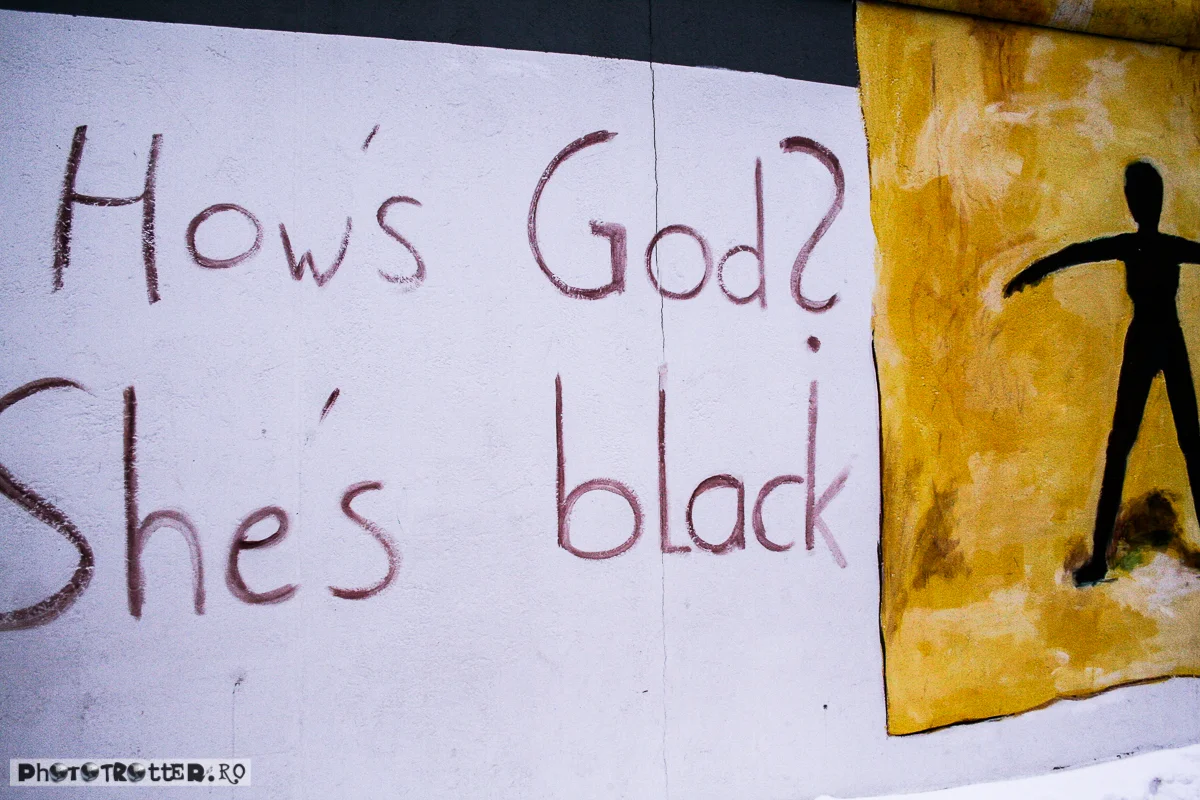 How's God?
She's black
PHOTOTROTTER.RO